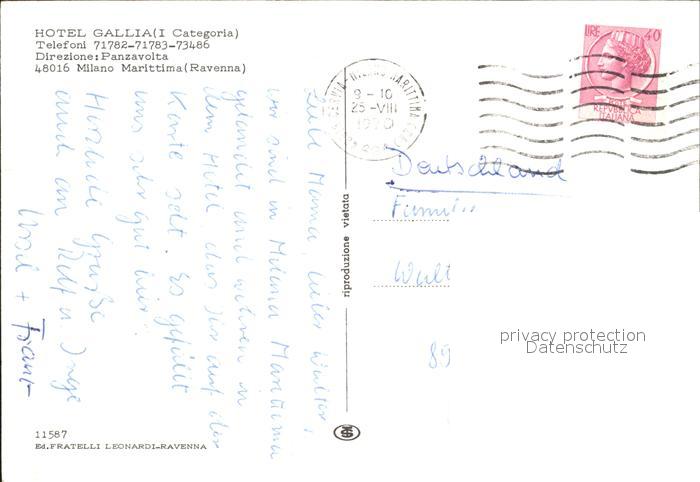 HOTEL GALLIA(I Categoria)
Telefoni 71782-71783-73486
Direzione:Panzavolta
48016 Milano Marittima(Ravenna)
LIRE 40
POSTE
REPUBBLICA
ITALIANA
CERVIA-MILANO MARITTIMA
9-10
25-VIII
1970
Liebe Mama, lieber Walter,
wir sind in Milano Marittima
gelandet und wohnen in
dem Hotel, das Ihr auf der
Karte seht. Es gefällt
uns sehr gut hier.
Herzliche Grüße
auch an Rolf u. Inge
Ursel + Franz
Deutschland
Famili
Walt
89
riproduzione vietata
privacy protection
Datenschutz
11587
Ed.FRATELLI LEONARDI-RAVENNA